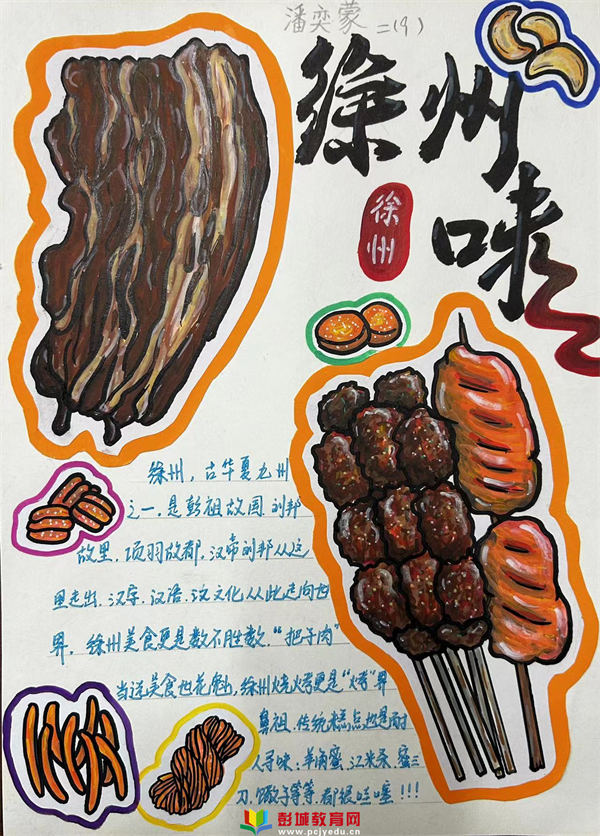 潘奕蒙 二(9)
徐州味
徐州
徐州,古华夏九州
之一,是彭祖故国、刘邦
故里、项羽故都,汉帝刘邦从这
里走出,汉字、汉语、汉文化从此走向世
界,徐州美食更是数不胜数,“把子肉”
当选美食包花魁,徐州烧烤更是“烤”界
鼻祖,传统糕点也是耐
人寻味,羊角蜜、江米条、蜜三
刀、馓子等等,都很哇噻!!!
彭城教育网
www.pcjyedu.cn